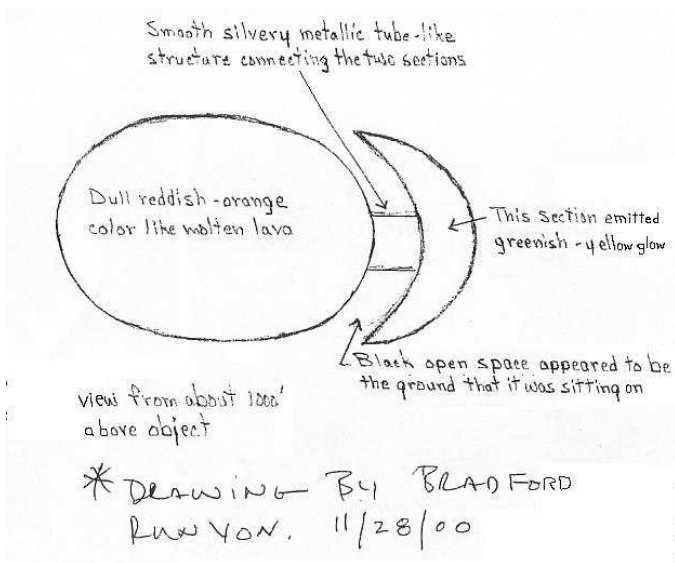 Smooth silvery metallic tube-like
structure connecting the two sections
Dull reddish-orange
color like molten lava
This section emitted
greenish-yellow glow
Black open space appeared to be
the ground that it was sitting on
view from about 1000'
above object
* DRAWING BY BRADFORD
RUNYON. 11/28/00